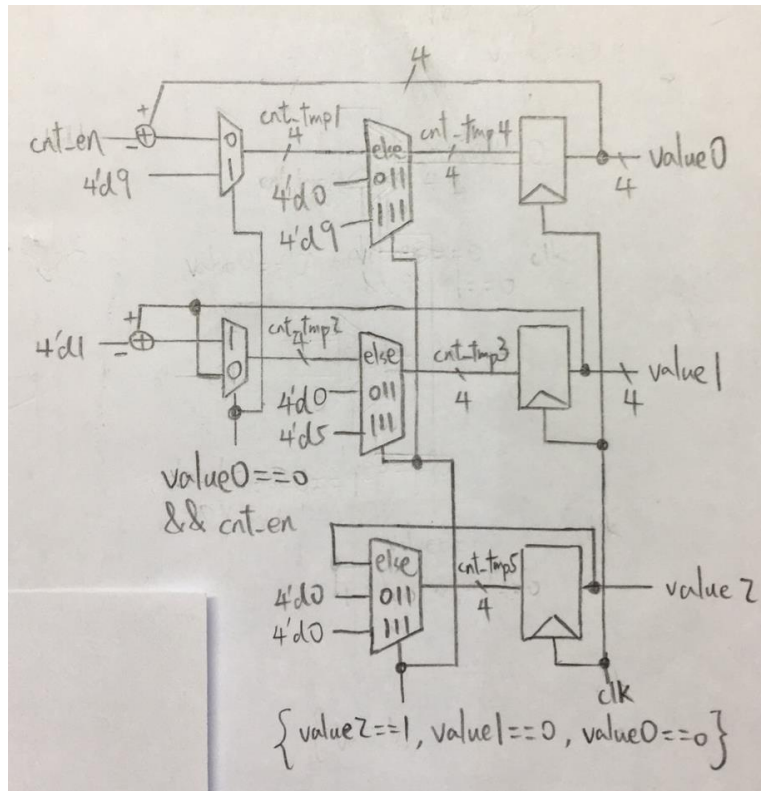 4
cnt_en
+
-
4'd9
0
1
cnt_tmp1
4
else
011
111
4'd0
4'd9
cnt_tmp4
4
value0
4
4'd1
+
-
1
0
cnt_tmp2
4
else
011
111
4'd0
4'd5
cnt_tmp3
4
value1
4
value0==0
&& cnt_en
else
011
111
4'd0
4'd0
cnt_tmp5
4
value2
clk
{value2==1, value1==0, value0==0}